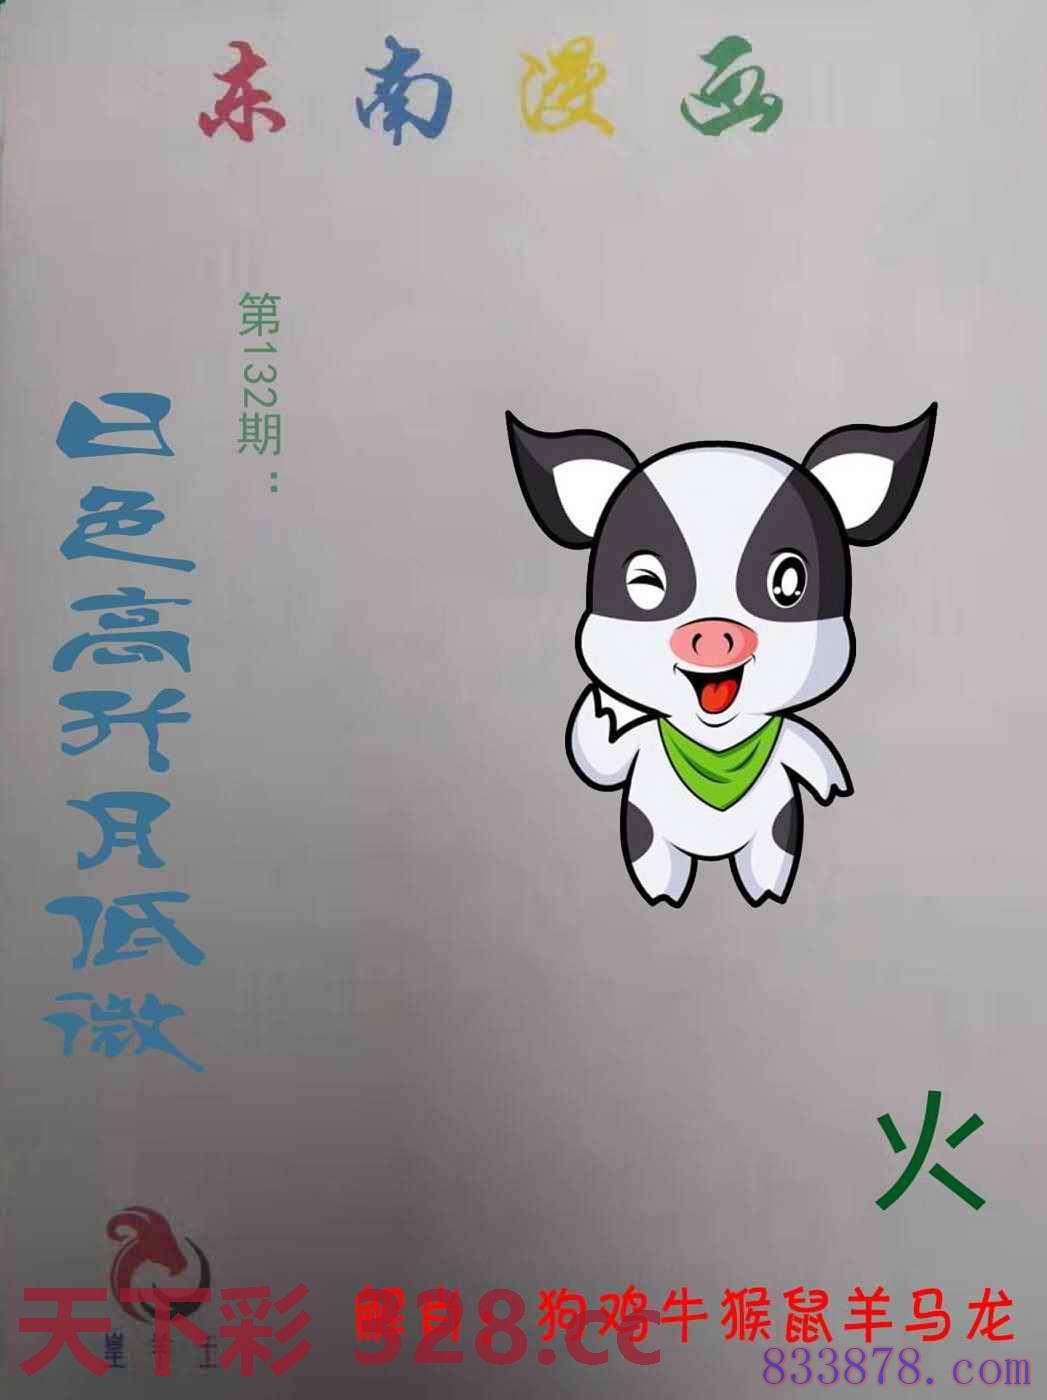 东南漫画
第132期：
日色高升月低微
火
天下彩 328.cc
解肖 狗鸡牛猴鼠羊马龙
833878.com